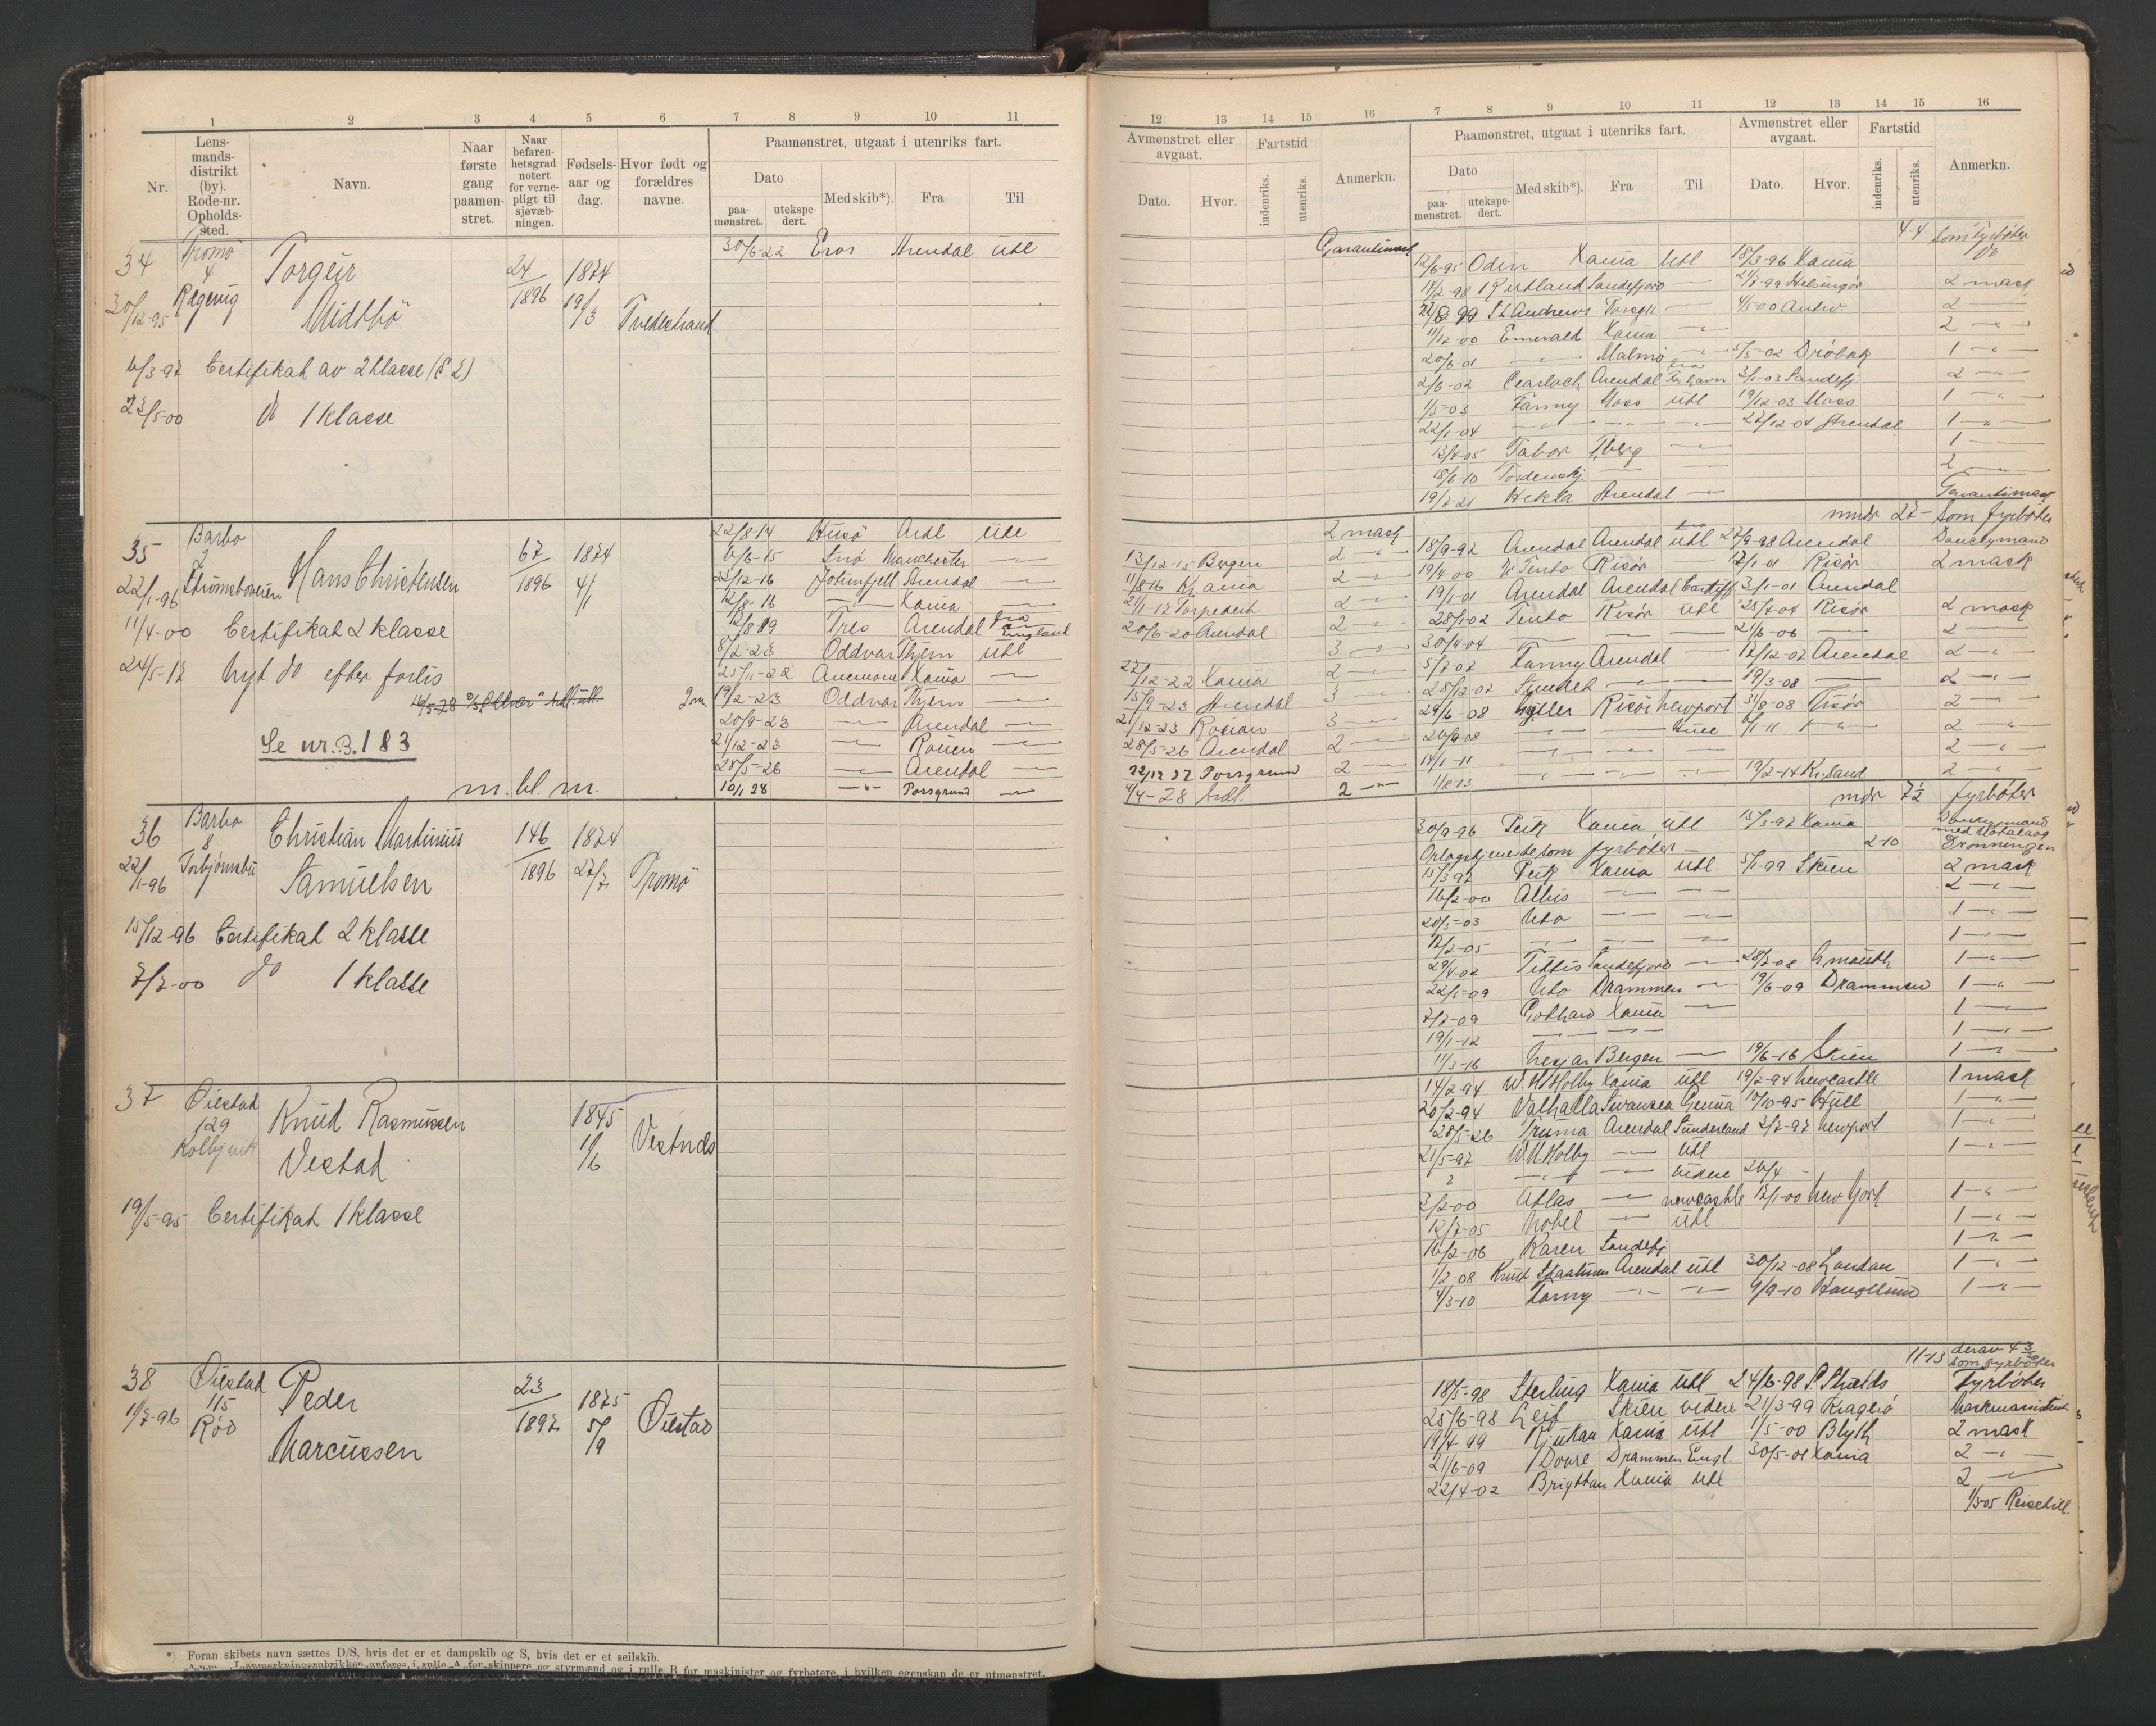 1 2 3 4 5 6 7 8 9 10 11
Nr.
Lens-
mands-
distrikt
(by).
Rode-nr.
Opholds-
sted.
Navn.
Naar
første
gang
paamøn-
stret.
Naar
befaren-
hetsgrad
notert
for verne-
pligt til
sjøvæb-
ningen.
Fødsels-
aar og
dag.
Hvor født og
forældres
navne.
Paamønstret, utgaat i utenriks fart.
Dato
paa-
mønstret.
utekspe-
dert.
Med skib*).
Fra
Til
34 Tromø
4
30/12-95
Torgeir
Midtbø
24/1896
1874
19/3
Tvedestrand
6/3-97 Certifikat av 2 klasse (§ 2)
23/5-00 do 1 klasse
30/6-22 Eros Arendal Utl
35 Barbo
22/1-96 Strømsboveien
Hans Christensen
67/1896
1874
4/1
11/4-00 Certifikat 2 klasse
24/5-17 Nyt do efter forlis
Se nr. B. 183
m. bl. m.
22/8-14 Husø Ardl Utl
6/6-15 Snø Manchester — 
22/12-16 Jotunfjell Arendal —
12/8-16 —"— Kania —
12/8-19 Tres Arendal fra England
8/2-23 Oddvar Thjem Utl
25/11-22 Kania —
19/2-23 Oddvar Thjem —
20/9-23 —"— Arendal —
21/12-23 — Rouen —
28/5-26 — Arendal —
10/1 28 —"— Porsgrund —
36 Barbo
8
22/1-96 Torbjørnsbu
Christian Martinius
Samuelsen
146/1896
1874
27/7
Tromø
15/12-96 Certifikat 2 klasse
7/7-00 do 1 klasse
37 Øiestad
129
Kolbjørnsvik
Knud Rasmussen
Vestad
1845
11/6
Vestnds
19/5-95 Certifikat 1 klasse
38 Øiestad
115
11/7-96 Rød
Peder
Marcussen
23/1897
1875
5/9
Øiestad
*) Foran skibets navn sættes D/S, hvis det er et dampskib og S, hvis det er et seilskib.
Anm. I anmerkningsrubrikken anføres i rulle A for skippere og styrmænd og i rulle B for maskinister og fyrbøtere, i hvilken egenskap de er utmønstret.
12 13 14 15 16 7 8 9 10 11 12 13 14 15 16
Avmønstret eller
avgaat.
Dato.
Hvor.
Fartstid
indenriks.
utenriks.
Anmerkn.
Paamønstret, utgaat i utenriks fart.
Dato
paa-
mønstret.
utekspe-
dert.
Med skib*).
Fra
Til
Avmønstret eller
avgaat.
Dato.
Hvor.
Fartstid
indenriks.
utenriks.
Anmerkn.
Garantimask
4-4 som Fyrbøter
12/6-95 Odin Kania Utl 18/3-96 Kania do
14/2-98 Rutland Sandefjord — 21/7-99 Helsingør 2 mask
St. Andrews — 4/5-00 Antw. 2 —
11/12-00 Emerald Kania — 2 —"—
20/6-01 —"— Malmø — 5/5-02 Drøbak 1 —"—
2/6-02 Arendal 3/1-03 Sandefj 2 —"—
1/5-03 Fanny Moss Utl 19/12-03 Moss 1 —"—
22/1-04 —"— —"— —"— 22/12-04 Arendal 1 —"—
13/4-05 Tabor Tberg — 1 —
18/6-10 Tordenskj. — — 2 —
19/2-21 Hekla Arendal — Garantimask
2 mask
mndr 27- som fyrbøter
13/12-15 Bergen 2 —"— 18/9-97 Arendal Arendal Utl 27/9-98 Arendal Donkeymand
11/8-16 Kania 2 —"— 19/4-00 Tento Risør 12/1-01 Risør 2 mask
21/1-17 2 —"— 19/1-01 Arendal Arendal Cardiff 3/1-01 Arendal
20/6-20 Arendal 2 —"— 28/1-02 Tento Risør Utl 28/4-04 Risør 2 mask
3 —"— 30/4-04 — — — 21/6-06 — 2 —
27/12-22 Kania 2 —"— 5/7-07 Fanny Arendal — 17/12-07 Arendal 2 —"—
15/9-23 Arendal 3 —"— 28/12-07 Syndet — — 19/3-08 — 2 —"—
21/12-23 Rouen 3 —"— 29/6-08 Gyller Risør Newport 31/8-08 Risør 2 —
28/5-26 Arendal 2 —"— 20/9-08 — — Hull 6/1-11 2 —"—
22/12 27 Porsgrund 2 —"— 14/1-11 — — 2 —"—
4/4-28 Ardl. 2 —"— 1/8-13 — — — 19/2-14 Kr.sand 2 —"—
mdr 7½ fyrbøter
30/9-96 Peik Kania Utl 15/3-97 Kania Donkeymand
Oplagstjeneste som fyrbøter — 2-10 Dronningen
15/3-97 Peik Kania Utl 5/1-99 Skien 2 mask
16/2-00 Albis — — 2 —"—
20/5-03 Uto — — 1 —"—
12/2-05 — — — 1 —"—
29/4-07 Tittis Sandefjord — 28/7-08 1 —"—
22/5-09 Uto Drammen — 19/6-09 Drammen 1 —"—
7/7-09 Gothard Kania — 1 —"—
19/1-12 — — 1 —"—
11/3-16 Nesjar Bergen — 19/6-16 Skien 1 —"—
14/2-94 W. H. Holby Kania Utl 19/2-94 Newcastle 1 mask
20/2-94 Valhalla Swansea Genua 10/10-95 Hull 1 —"—
Truma Arendal Sunderland 2/7-97 Newport 1 —"—
21/5-97 W. H. Holby — Utl 1 —"—
— — videre 20/4 -
3/2-00 Atlas — Newcastle 12/1-00 New York 1 —"—
12/7-05 Nobel — Utl 1 —"—
16/2-06 Karen Sandefj 1 —"—
1/2-08 Knut Skaaluren Arendal Utl 30/12-08 London 1 —"—
4/3-10 Fanny — — 9/9-10 1 —"—
11-13 derav 4
som fyrbøter
18/5-98 Sterling Kania Utl 24/6-98 S. Shields Fyrbøter
25/6-98 Leif Skien videre 21/3-99 Kragerø Maskinassistent
19/4-99 Rjukan Kania Utl 1/5-00 Blyth 2 mask
21/6-09 Dovre Drammen Engl. 30/5-01 Kania 2 —"—
22/4-02 Brigthan Kania Utl 2 —
1/5-05 Reisetill.